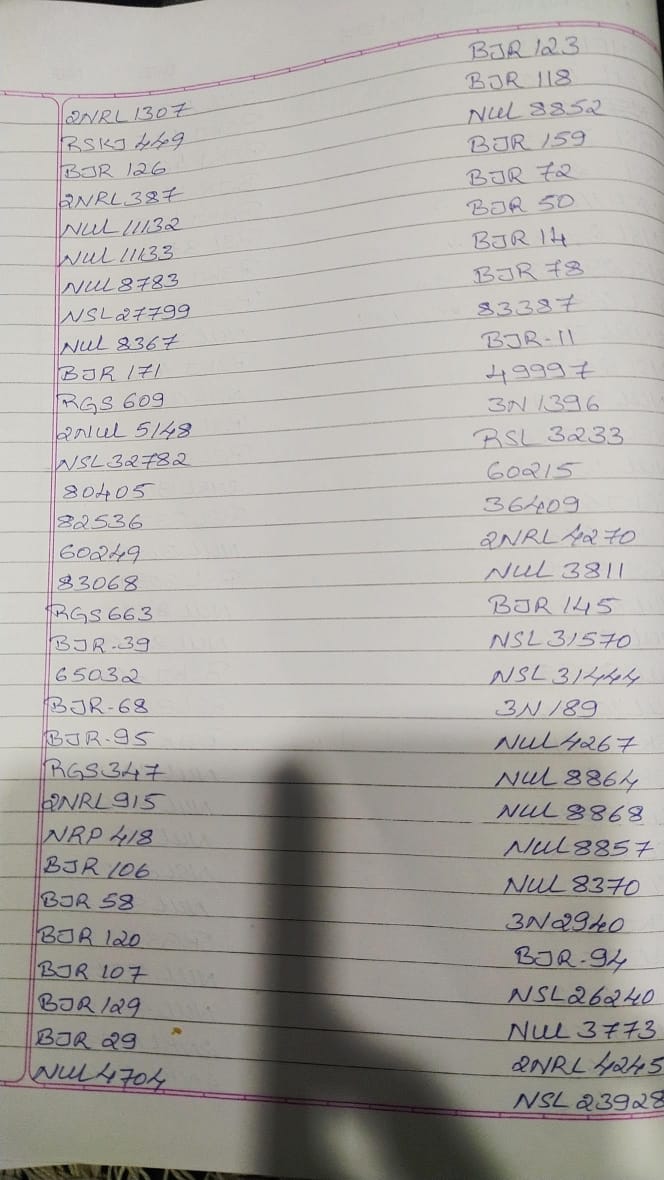 2NRL1307
RSKJ 449
BJR 126
2NRL387
NUL 11132
NUL 11133
NUL 8783
NSL27799
NUL 8367
BJR 171
RGS 609
2NUL 5148
NSL32782
80405
82536
60249
83068
RGS663
BJR-39
65032
BJR-68
BJR-95
RGS347
2NRL915
NRP 418
BJR 106
BJR 58
BJR 120
BJR 107
BJR 129
BJR 29
NUL4704
BJR 123
BJR 118
NUL 8852
BJR 159
BJR 72
BJR 50
BJR 14
BJR 78
83387
BJR-11
49997
3N 1396
RSL 3233
60215
36409
2NRL4270
NUL 3811
BJR 145
NSL31570
NSL31444
3N 189
NUL4267
NUL 8864
NUL 8868
NUL8857
NUL 8370
3N2940
BJR-94
NSL26240
NUL 3773
2NRL4245
NSL 23928